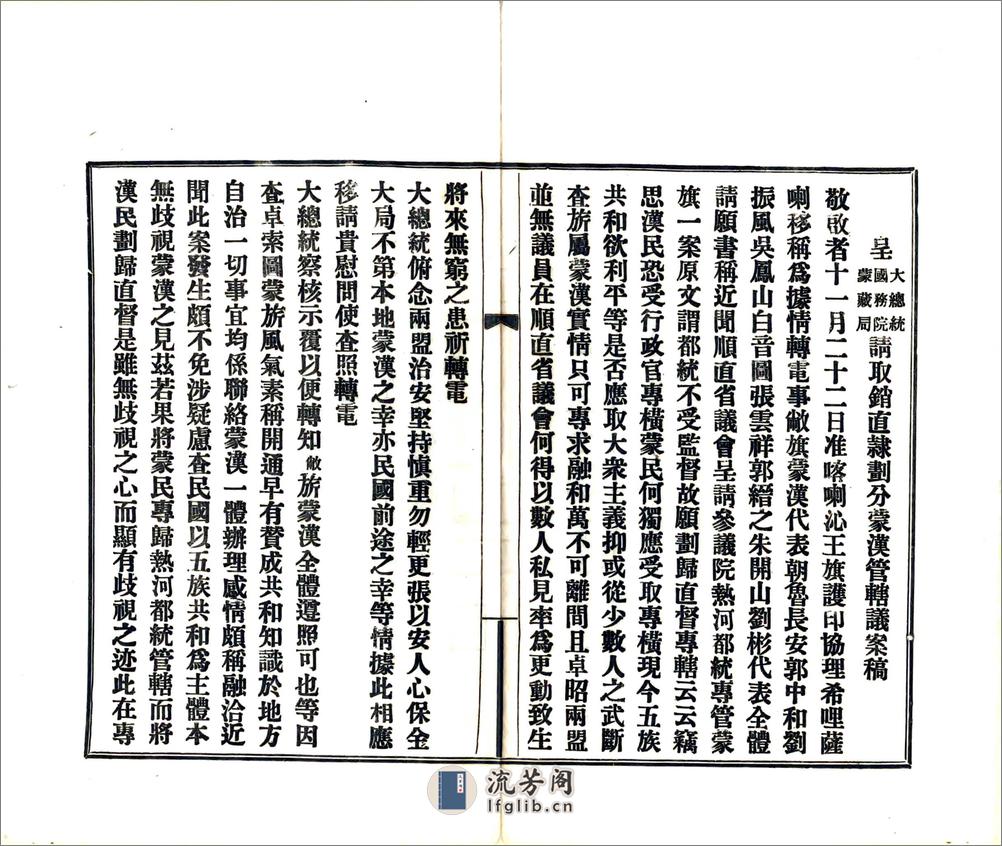 呈大總統國務院蒙藏局請取銷直隸劃分蒙漢管轄議案稿
敬啟者十一月二十二日准喀喇沁王旗護印協理希哩薩
喇移稱爲據情轉電事敝旗蒙漢代表朝魯長安郭中和劉
振風吳鳳山白音圖張雲祥郭縉之朱開山劉彬代表全體
請願書稱近聞順直省議會呈請參議院熱河都統專管蒙
旗一案原文謂都統不受監督故願劃歸直督專轄云云竊
思漢民恐受行政官專橫蒙民何獨應受取專橫現今五族
共和欲利平等是否應取大衆主義抑或從少數人之武斷
查旂屬蒙漢實情只可專求融和萬不可離間且卓昭兩盟
並無議員在順直省議會何得以數人私見率爲更動致生
將來無窮之患祈轉電
大總統俯念兩盟治安堅持慎重勿輕更張以安人心保全
大局不第本地蒙漢之幸亦民國前途之幸等情據此相應
移請貴慰問使查照轉電
大總統察核示覆以便轉知敝旂蒙漢全體遵照可也等因
查卓索圖蒙旂風氣素稱開通早有贊成共和知識於地方
自治一切事宜均係聯絡蒙漢一體辦理感情頗稱融洽近
聞此案發生頗不免涉疑慮查民國以五族共和爲主體本
無歧視蒙漢之見茲若果將蒙民專歸熱河都統管轄而將
漢民劃歸直督是雖無歧視之心而顯有歧視之迹此在專
流芳阁
lfglib.cn